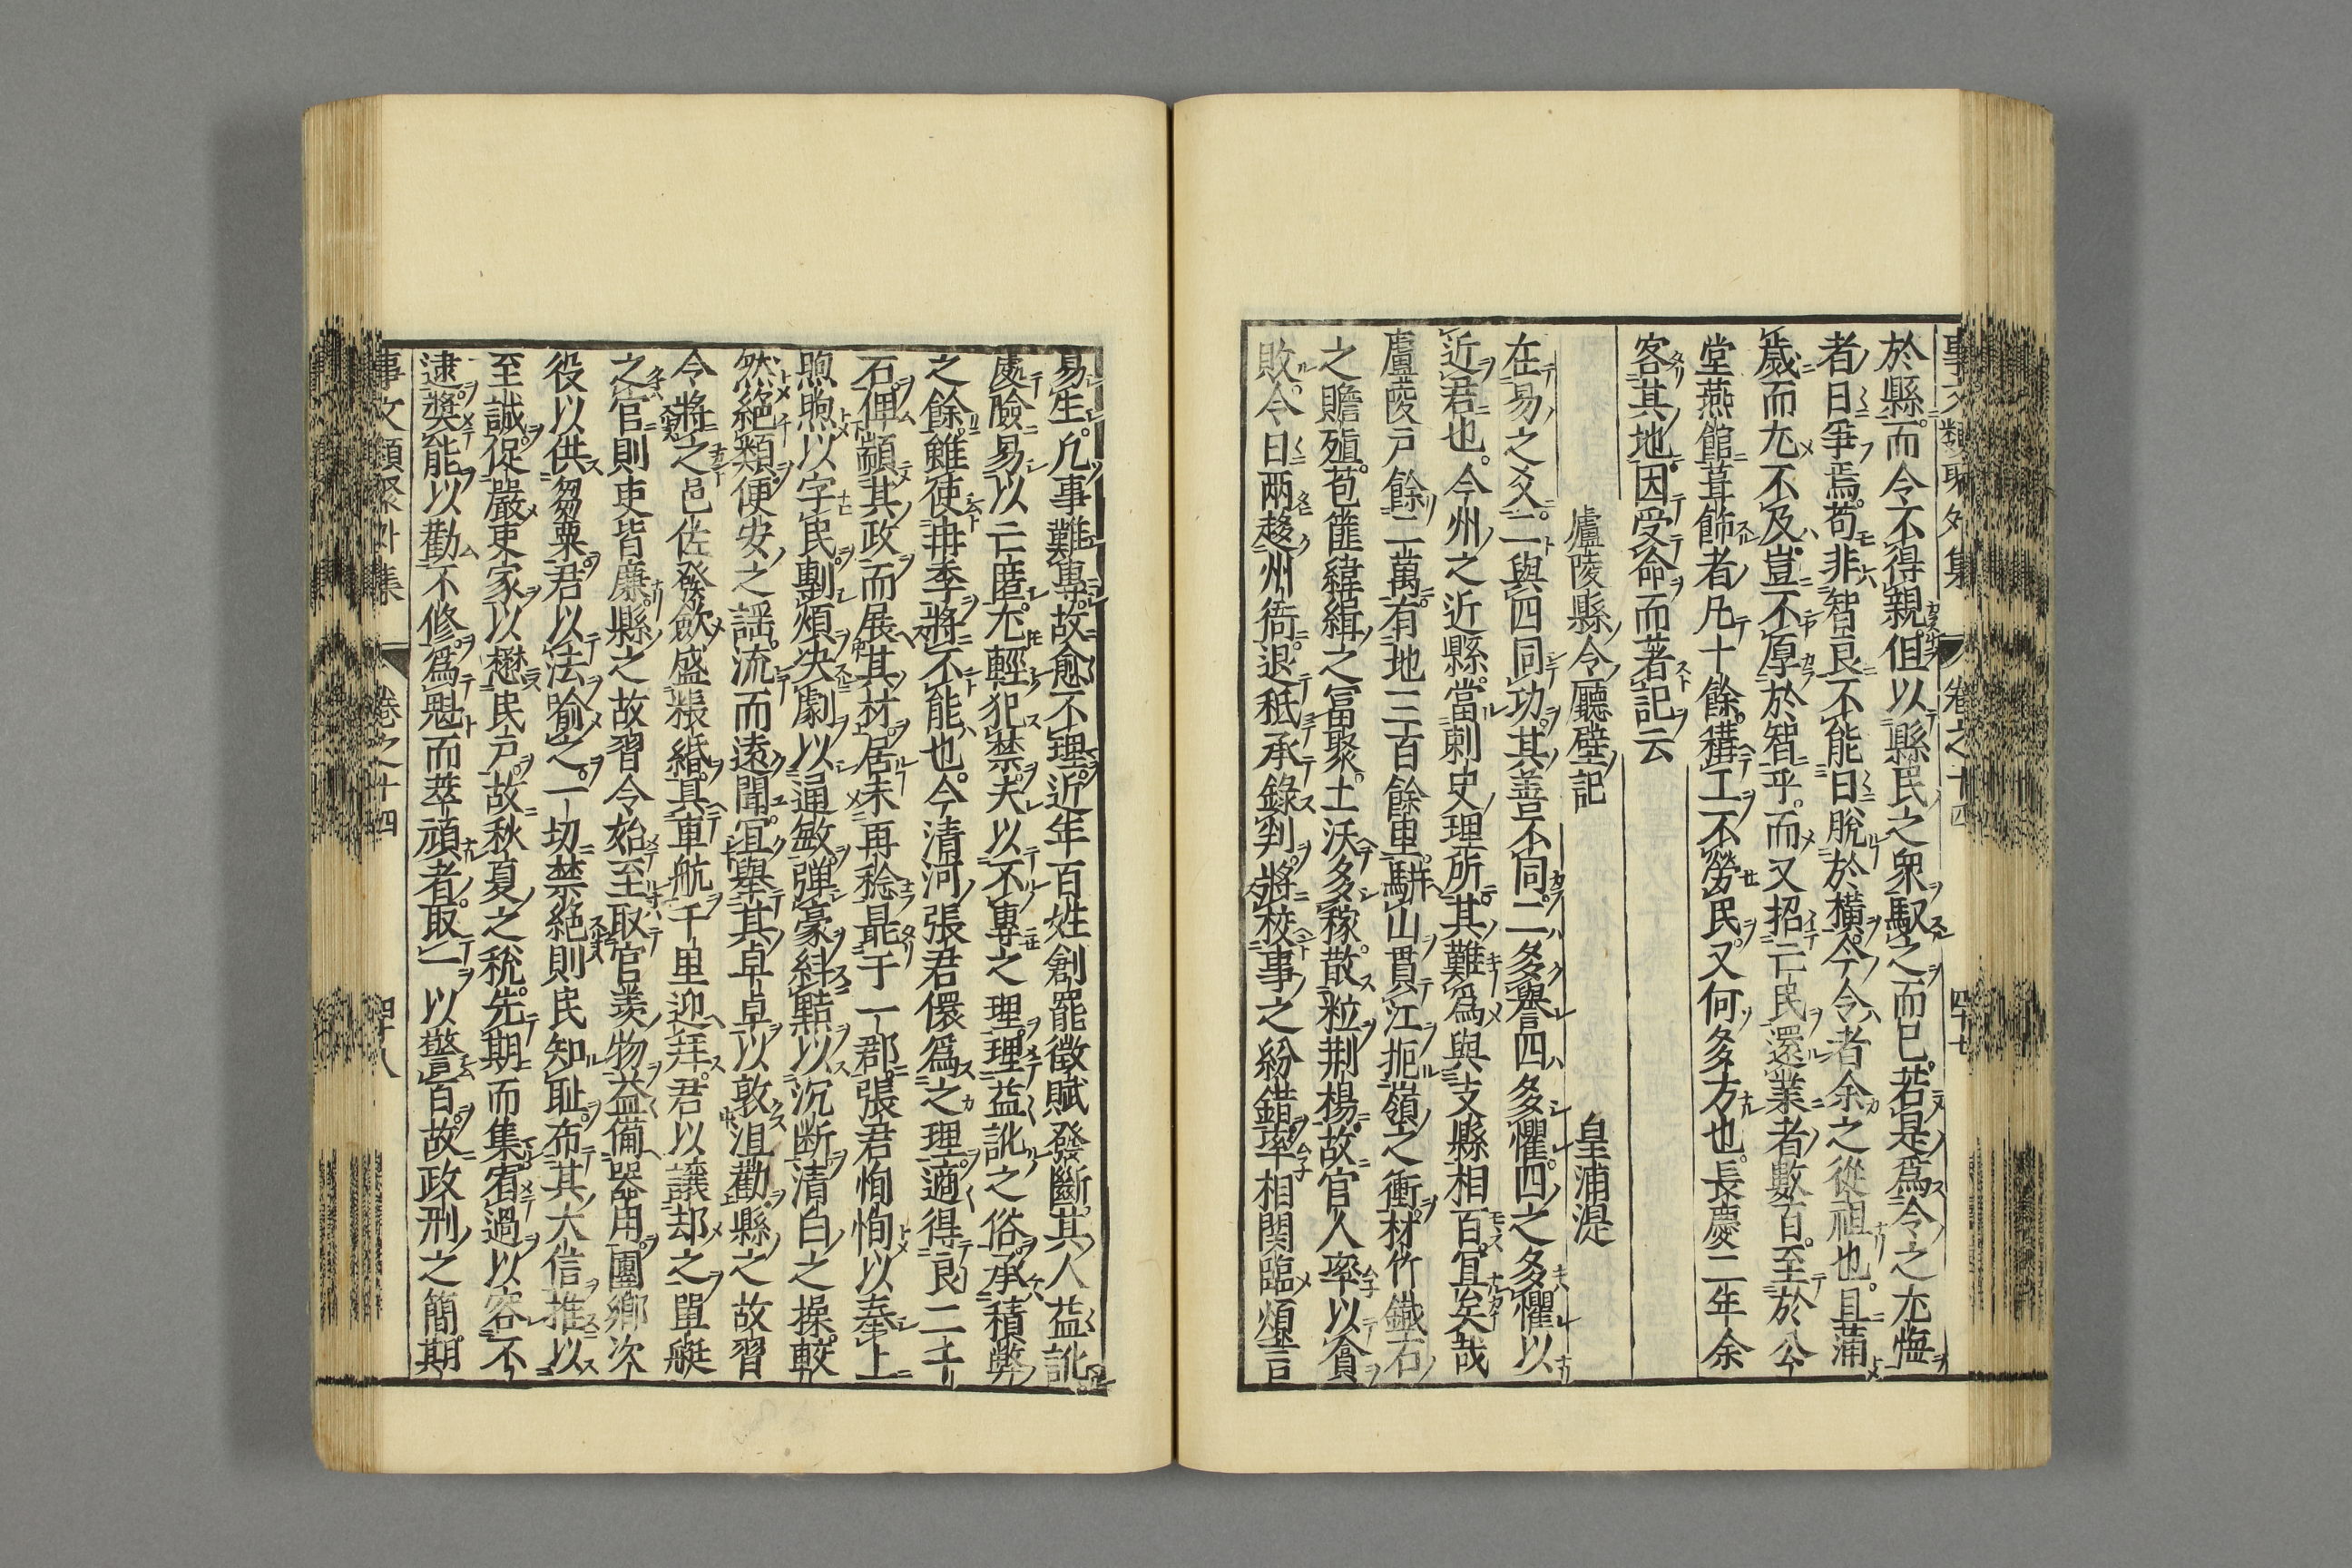 事文類聚外集 卷之十四 四十七
於縣而令不得親但以縣民之衆馭之而已若是爲令之尤悔
者日爭焉苟非智良不能日脫於橫今令者余之從祖也且蒲
歲而尤不及豈不厚於智乎而又招亡民還業者數百至於公
堂燕館葺飾者凡十餘構工不勞民又何多方也長慶二年余
客其地因受命而著記云
廬陵縣令廳壁記 皇浦湜
在易之爻二與四同功其善不同二多譽四多懼四之多懼以
近君也今州之近縣當刺史理所其難爲與支縣相百宜矣哉
廬陵戶餘二萬有地三百餘里駢山貫江扼嶺之衝材竹鐵石
之贍殖苞篚緯緝之富聚土沃多稼散粒荆楊故官人率以貪
敗今日兩趍州衙退秪承錄判將校事之紛錯率相関臨煩言
易生凡事難專故愈不理近年百姓創罷徵賦發斷其人益訛
處險易以亡匿尤輕犯禁夫以不專之理理益訛之俗承積弊
之餘雖使冉季將不能也今清河張君儇爲之理適得良二千
石俾顓其政而展其材居未再稔最于一郡張君恂恂以奉上
煦煦以字民剸煩決劇以通敏弾豪糾黠以沉断清白之操較
然絕類便安之謡流而遠聞宜舉其卓卓以敦沮勸縣之故習
令將之邑佐發斂盛粻緡具車航千里迎拜君以讓却之單艇
之官則吏皆廉縣之故習令始至取官羨物益備器用團鄉次
役以供芻粟君以法喻之一切禁絕則民知耻布其大信推以
至誠促嚴吏家以懋民戶故秋夏之稅先期而集宥過以容不
逮奬能以勸不修爲魁而莘頑者取一以警百故政刑之簡期
事文類聚外集 卷之十四 四十八